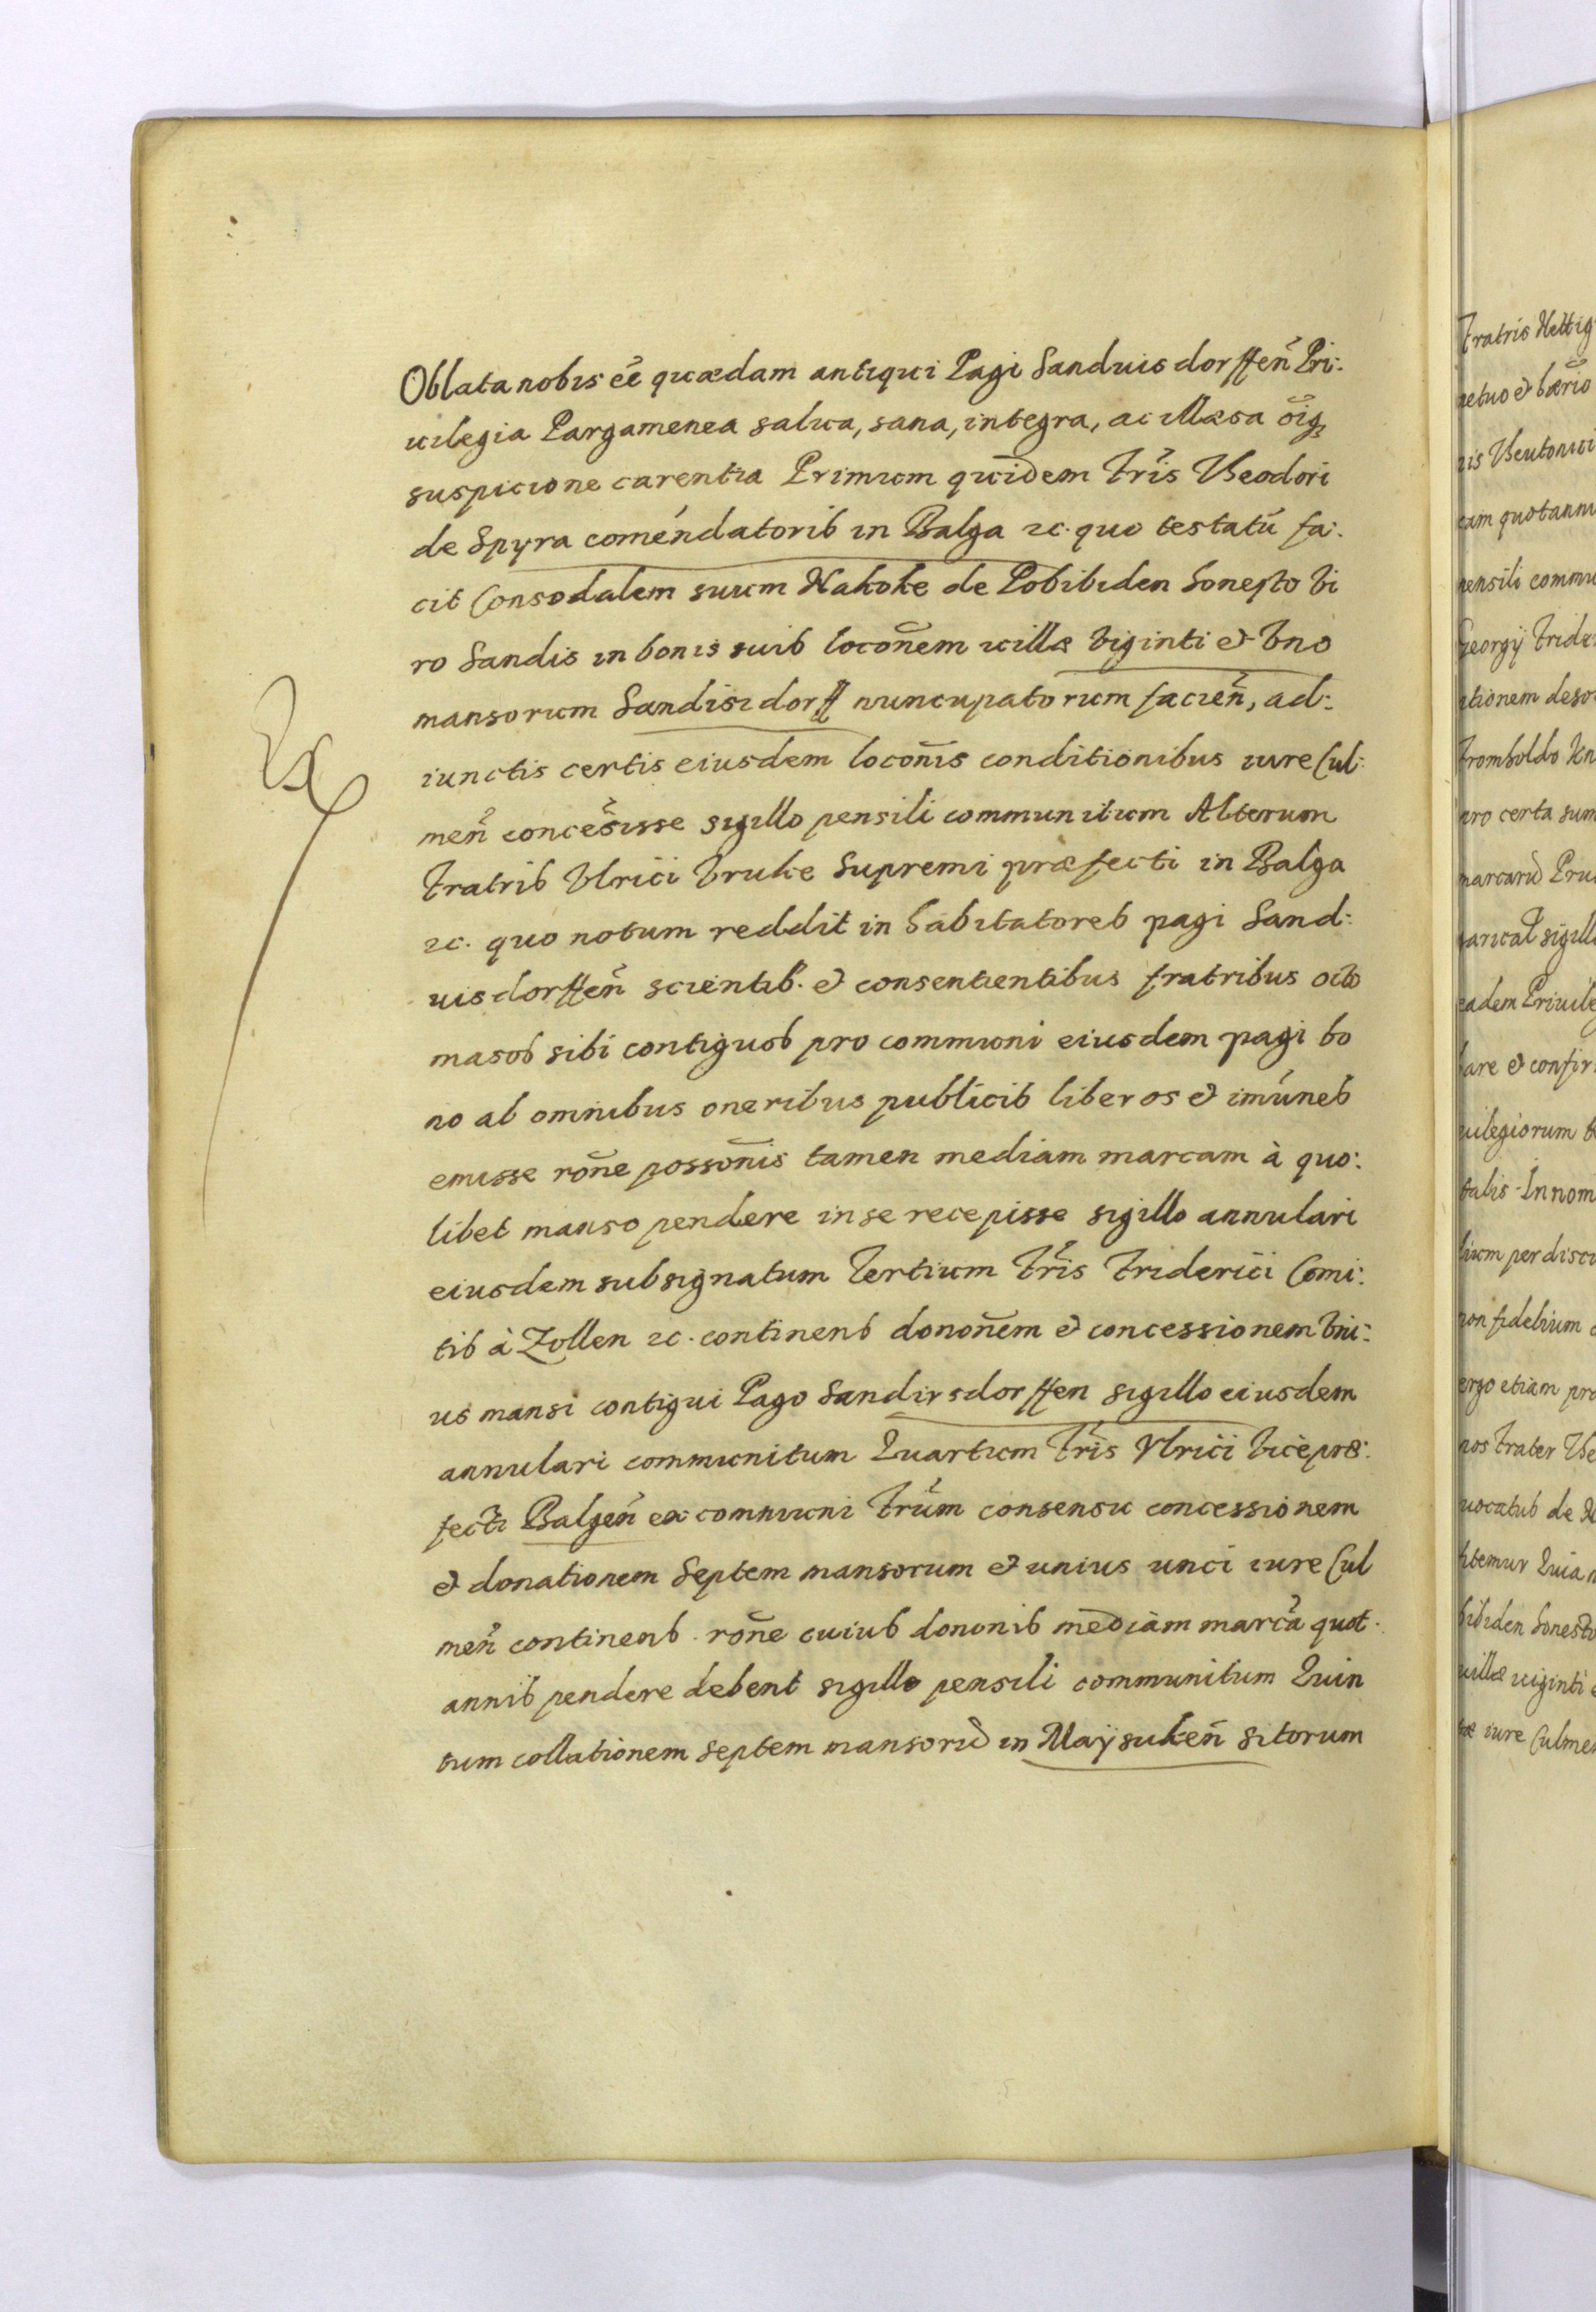 Oblata nobis eē quædam antiqui Pagi Sanduisdorffeñ Pri:
uilegia Pargamenea salua, sana, integra, ac illæsa õiq3
suspicione carentia Primum quidem Fr̃is Theodori
de Spyra comendatoris in Balga ꝛc. quo testatū fa:
cit Consodalem suum Nakoke de Pobibiden honesto vi
ro Sandis in bonis suis locoñem villæ viginti & vno
mansorum Sandisidorff nuncupatorum facieñ, ad:
iunctis certis eiusdem locoñis conditionibus iure Cul:
meñ conceŝisse sigillo pensili communitum Alterum
Fratris Vlrici Fruke Supremi præfecti in Balga
ꝛc. quo notum reddit inhabitatores pagi Sand:
uisdorffeñ scientib. & consentientibus fratribus octo
masos sibi contiguos pro communi eiusdem pagi bo
no ab omnibus oneribus publicis liberos & imūnes
emisse roñe possoñis tamen mediam marcam à quo:
libet manso pendere in se recepisse sigillo annulari
eiusdem subsignatum Tertium Fr̃is Friderici Comi:
tis à Zollen ꝛc. continens donoñem & concessionem vni:
us mansi contigui Pago Sandirsdorffen sigillo eiusdem
annulari communitum Quartum Fr̃is Vlrici Viceprę:
fecti Balgeñ ex communi Fr̃um consensu concessionem
& donationem Septem mansorum & unius unci iure Cul
meñ continens. roñe cuius dononis mediam marcã quot
annis pendere debent sigillo pensili communitum Quin
tum collationem septem mansorū in Maÿsukeñ sitorum
Fratris
petuo &
cam
pensili
Georgij
pro certa sum
&
talis
ergo etiam
nos frater
uocatus de
villæ viginti
iure Culme